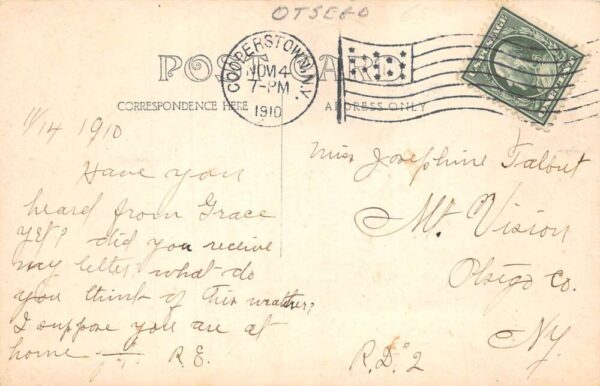 OTSEGO
POST CARD
COOPERSTOWN, N.Y.
NOV 14
7-PM
1910
CORRESPONDENCE HERE
ADDRESS ONLY
11/14 1910
Have you
heard from Grace
yet? did you receive
my letter? what do
you think of this weather?
I suppose you are at
home R.E.
Miss Josephine Talbut
Mt. Vision
Otsego Co.
NY.
R.D. 2